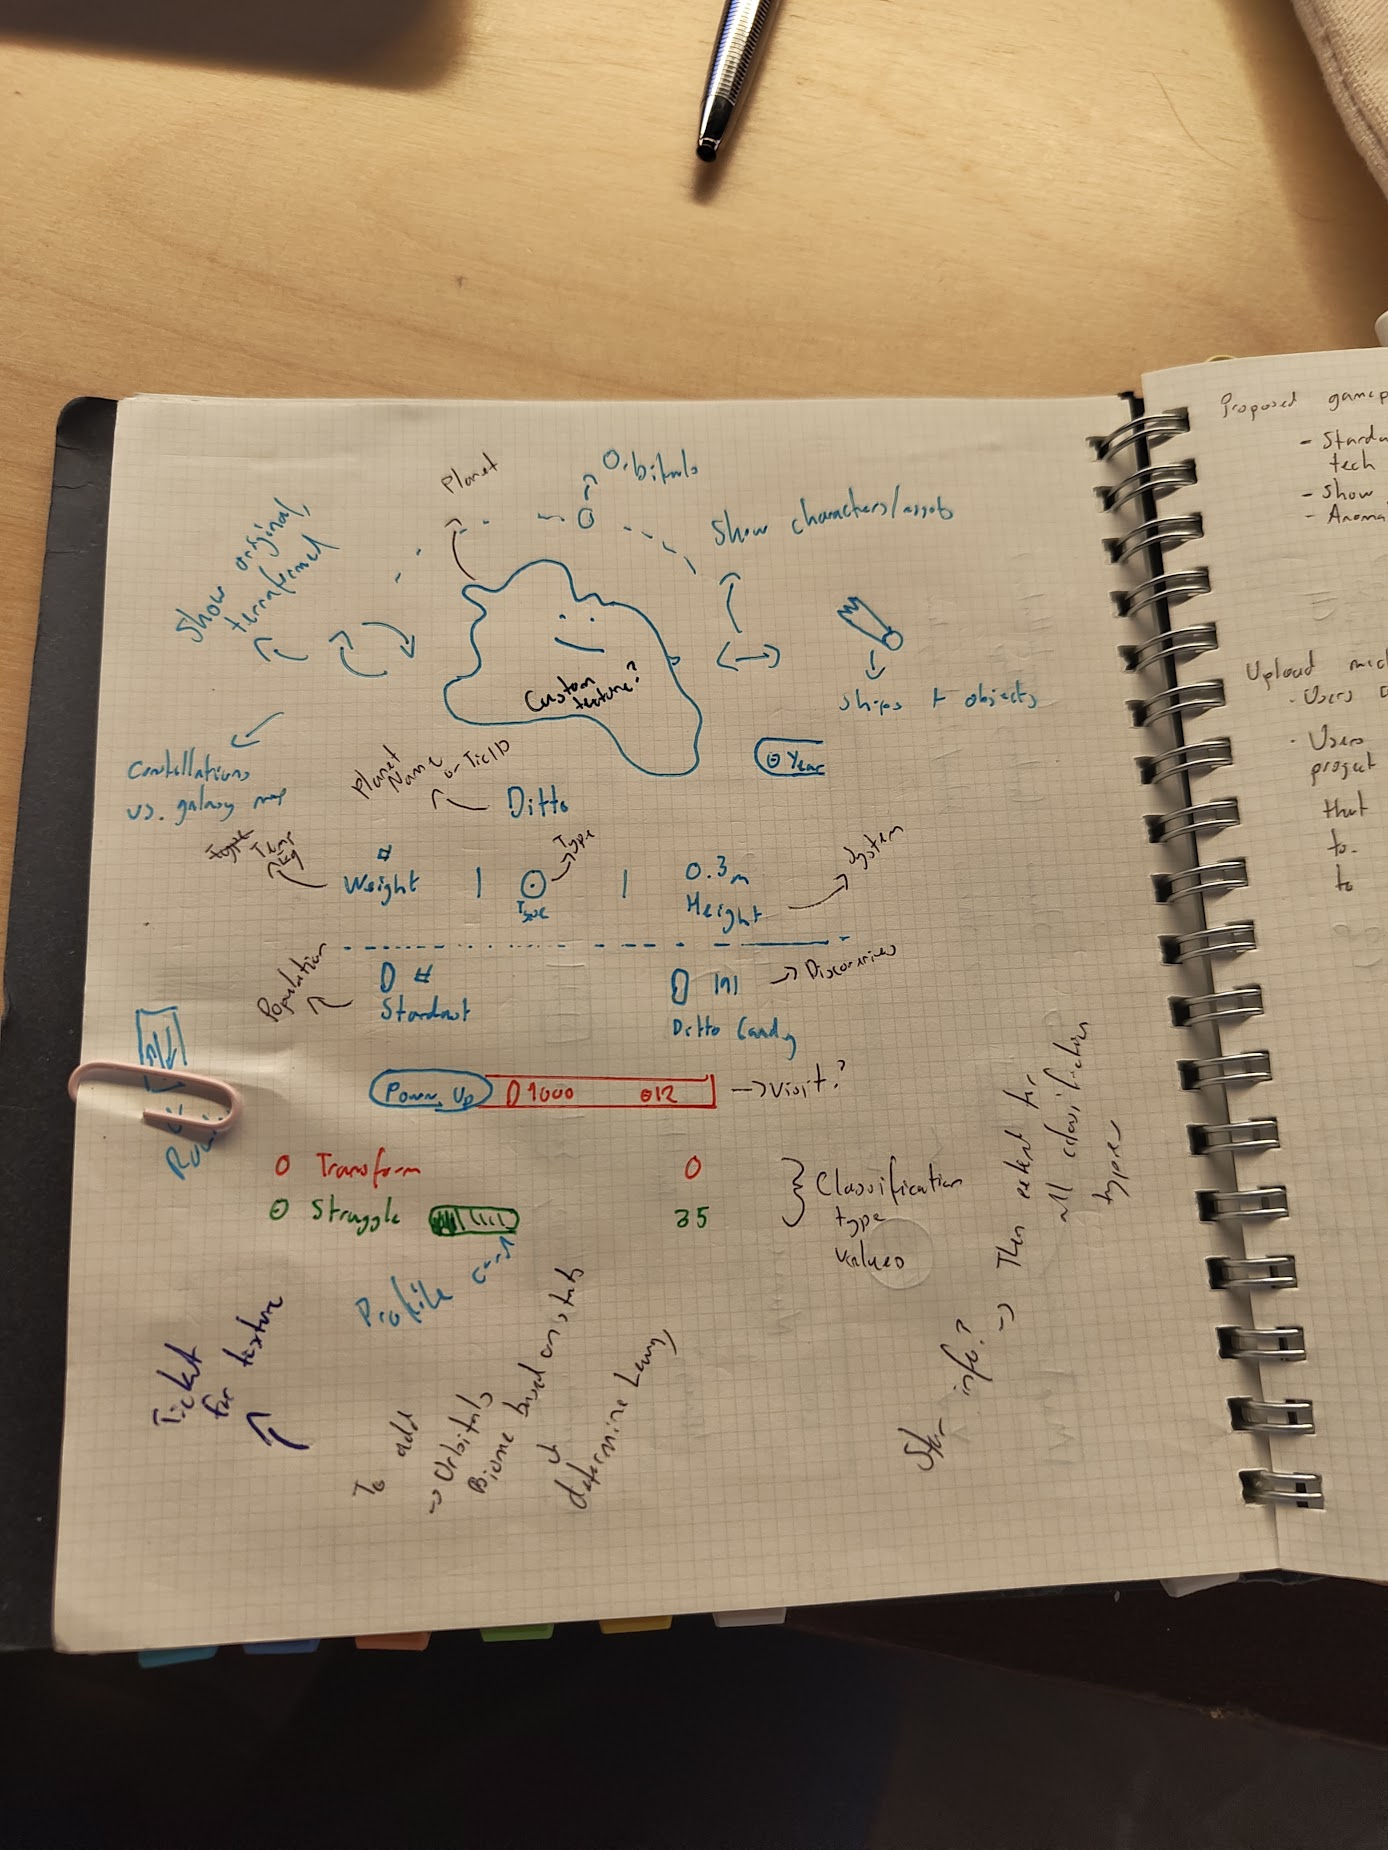 Planet
Orbitals
Show characters/assets
Show original,
terraformed
Custom
texture?
Ships + objects
Constellations
vs. galaxy map
Planet
Name
or TicID
Ditto
Year
Type
Temp
Weight
Type
Type
0.3m
Height
System
Population
#
Stardust
Discoveries
Ditto Candy
Power Up
1000
12
→ Visit?
Transform
0
Struggle
35
Classification
type
values
Profile card
Ticket
for texture
To add
→ Orbitals
Biome based on stats
determine
Star info?
→ Then extend for
all classification
types
Proposed
- Stardu
tech
- Show
- Anoma
Upload
- Users
- Users
project
that
to.
to